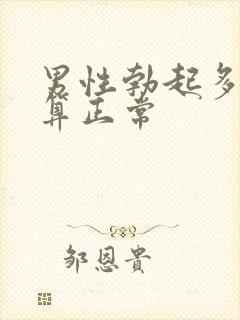 男性勃起多
算正常
邹恩貴